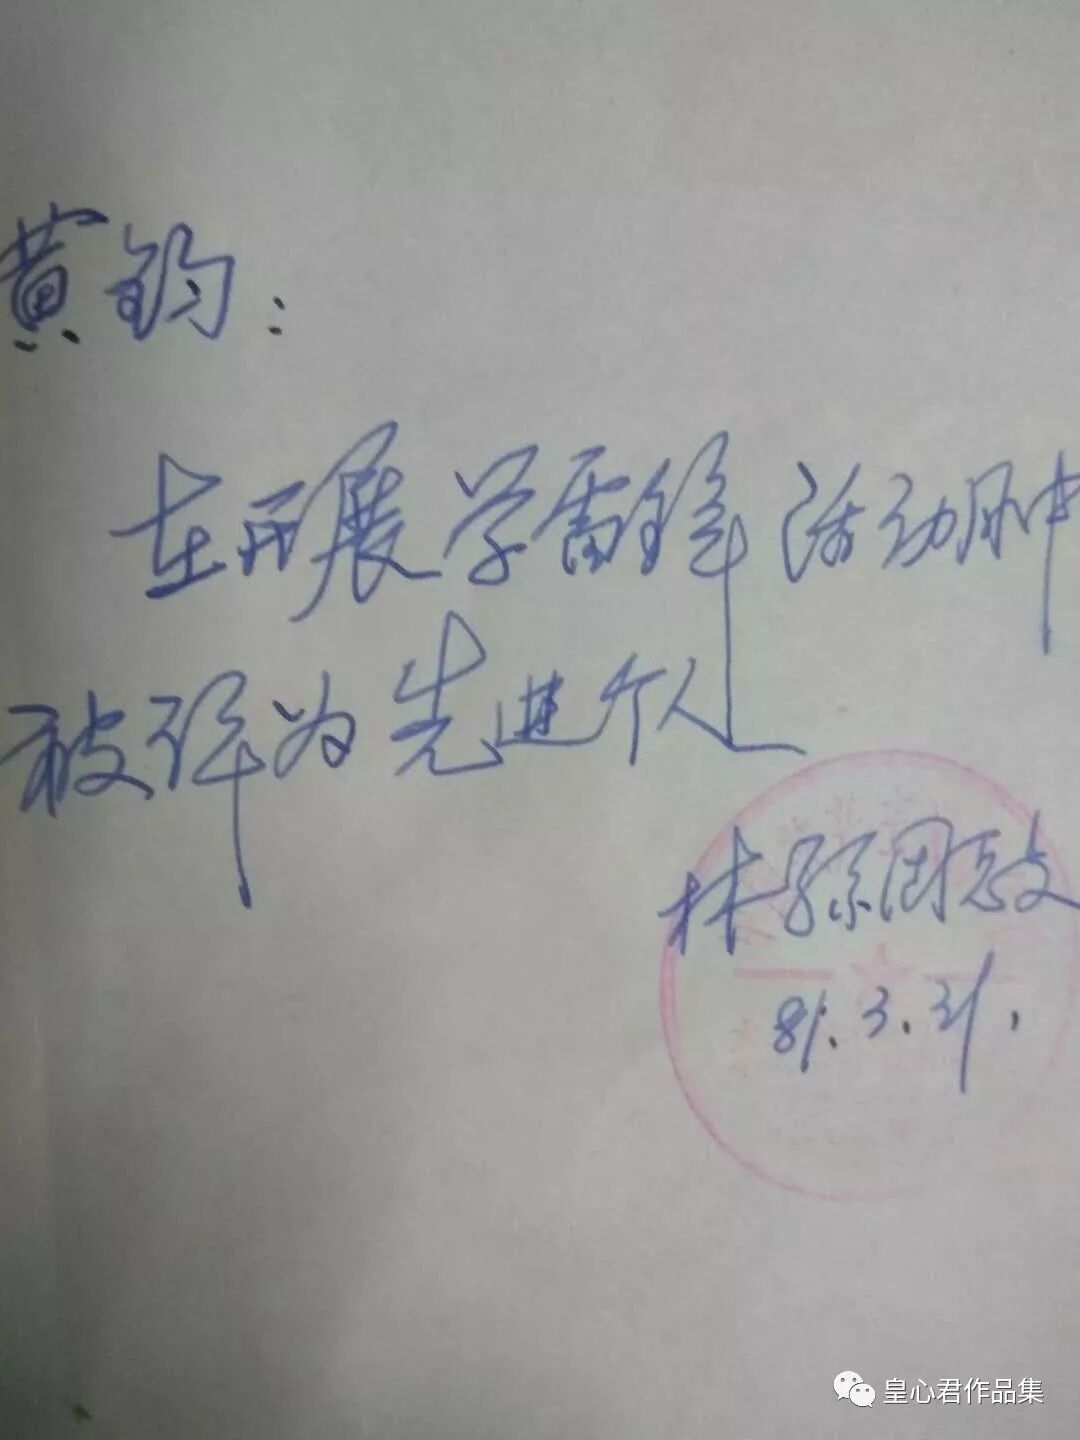 黄钧：
在开展学雷锋活动月中
被评为先进个人
林学系团总支
81.3.31.
皇心君作品集